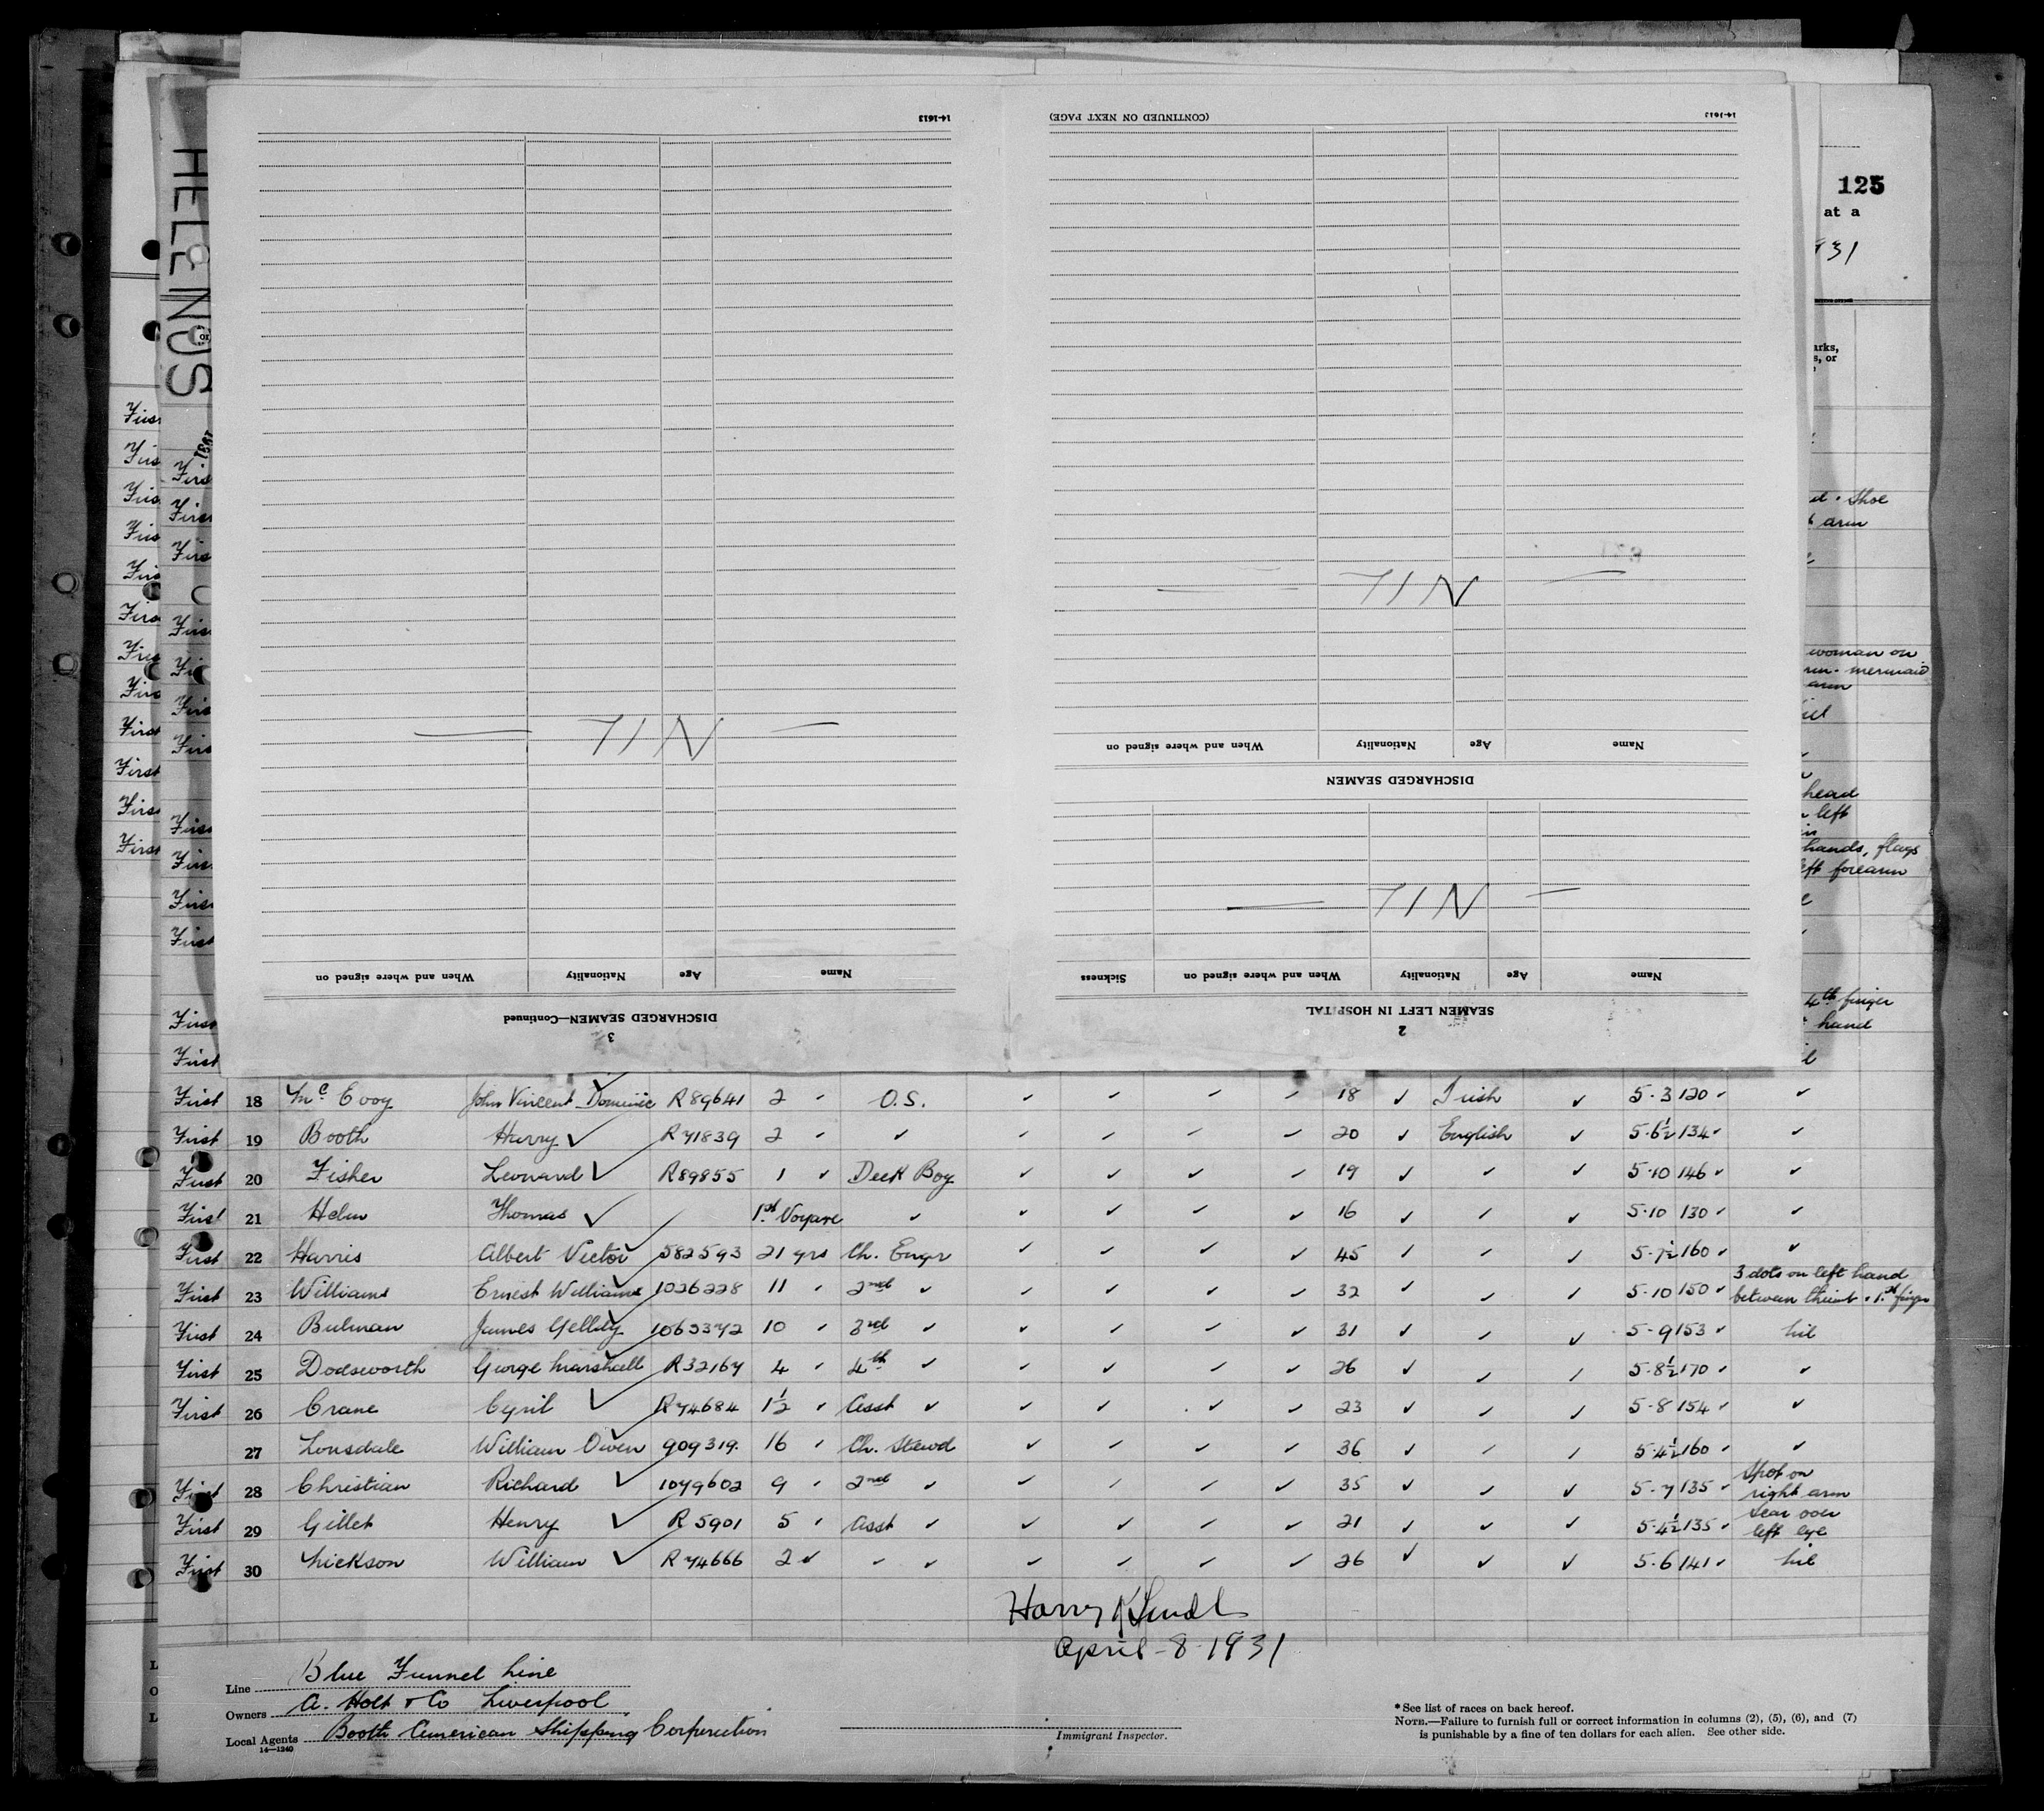 HELENUS
125
at a
31
arks,
s, or
14-1613
(CONTINUED ON NEXT PAGE)
14-1613
Shoe
arm
NIL
woman on
mermaid
arm
NIL
When and where signed on Nationality Age Name
DISCHARGED SEAMEN
head
left
hands, flags
left forearm
NIL
When and where signed on Nationality Age Name
Sickness When and where signed on Nationality Age Name
DISCHARGED SEAMEN—Continued
3
SEAMEN LEFT IN HOSPITAL
2
4th finger
hand
First
First
First 18 McEvoy John Vincent Dominic ✓ R89641 2 ✓ O.S. ✓ ✓ ✓ ✓ 18 ✓ Irish ✓ 5-3 120 ✓ ✓
First 19 Booth Harry ✓ R71839 2 ✓ ✓ ✓ ✓ ✓ ✓ 20 ✓ English ✓ 5-6½ 134 ✓ ✓
First 20 Fisher Leonard ✓ R89855 1 ✓ Deck Boy ✓ ✓ ✓ ✓ 19 ✓ ✓ ✓ 5-10 146 ✓ ✓
First 21 Helm Thomas ✓ 1st Voyage ✓ ✓ ✓ ✓ ✓ 16 ✓ ✓ ✓ 5-10 130 ✓ ✓
First 22 Harris Albert Victor ✓ 582593 21 yrs Ch. Engr ✓ ✓ ✓ ✓ 45 ✓ ✓ ✓ 5-7½ 160 ✓ ✓
First 23 Williams Ernest Williams ✓ 1026228 11 ✓ 2nd ✓ ✓ ✓ ✓ ✓ 32 ✓ ✓ ✓ 5-10 150 ✓ 3 dots on left hand between thumb & 1st finger
First 24 Bulman James ✓ 1063372 10 ✓ 3rd ✓ ✓ ✓ ✓ ✓ 31 ✓ ✓ ✓ 5-9 153 ✓ Nil
First 25 Dodsworth George Marshall ✓ R32167 4 ✓ 4th ✓ ✓ ✓ ✓ ✓ 26 ✓ ✓ ✓ 5-8½ 170 ✓ ✓
First 26 Crane Cyril ✓ R74684 1½ ✓ Asst ✓ ✓ ✓ ✓ ✓ 23 ✓ ✓ ✓ 5-8 154 ✓ ✓
27 Lonsdale William Owen ✓ 909319 16 ✓ Ch. Stewd ✓ ✓ ✓ ✓ 36 ✓ ✓ ✓ 5-4½ 160 ✓ ✓
First 28 Christian Richard ✓ 1079602 9 ✓ 2nd ✓ ✓ ✓ ✓ ✓ 35 ✓ ✓ ✓ 5-7 135 ✓ Spot on right arm
First 29 Gillet Henry ✓ R5901 5 ✓ Asst ✓ ✓ ✓ ✓ ✓ 21 ✓ ✓ ✓ 5-4½ 135 ✓ Scar over left eye
First 30 Nickson William ✓ R74666 2 ✓ ✓ ✓ ✓ ✓ ✓ ✓ 26 ✓ ✓ ✓ 5-6 141 ✓ Nil
Harry
April-8-1931
Line Blue Funnel Line
Owners A. Holt & Co Liverpool
Local Agents Booth American Shipping Corporation
14—1240
Immigrant Inspector.
*See list of races on back hereof.
NOTE.—Failure to furnish full or correct information in columns (2), (5), (6), and (7)
is punishable by a fine of ten dollars for each alien. See other side.